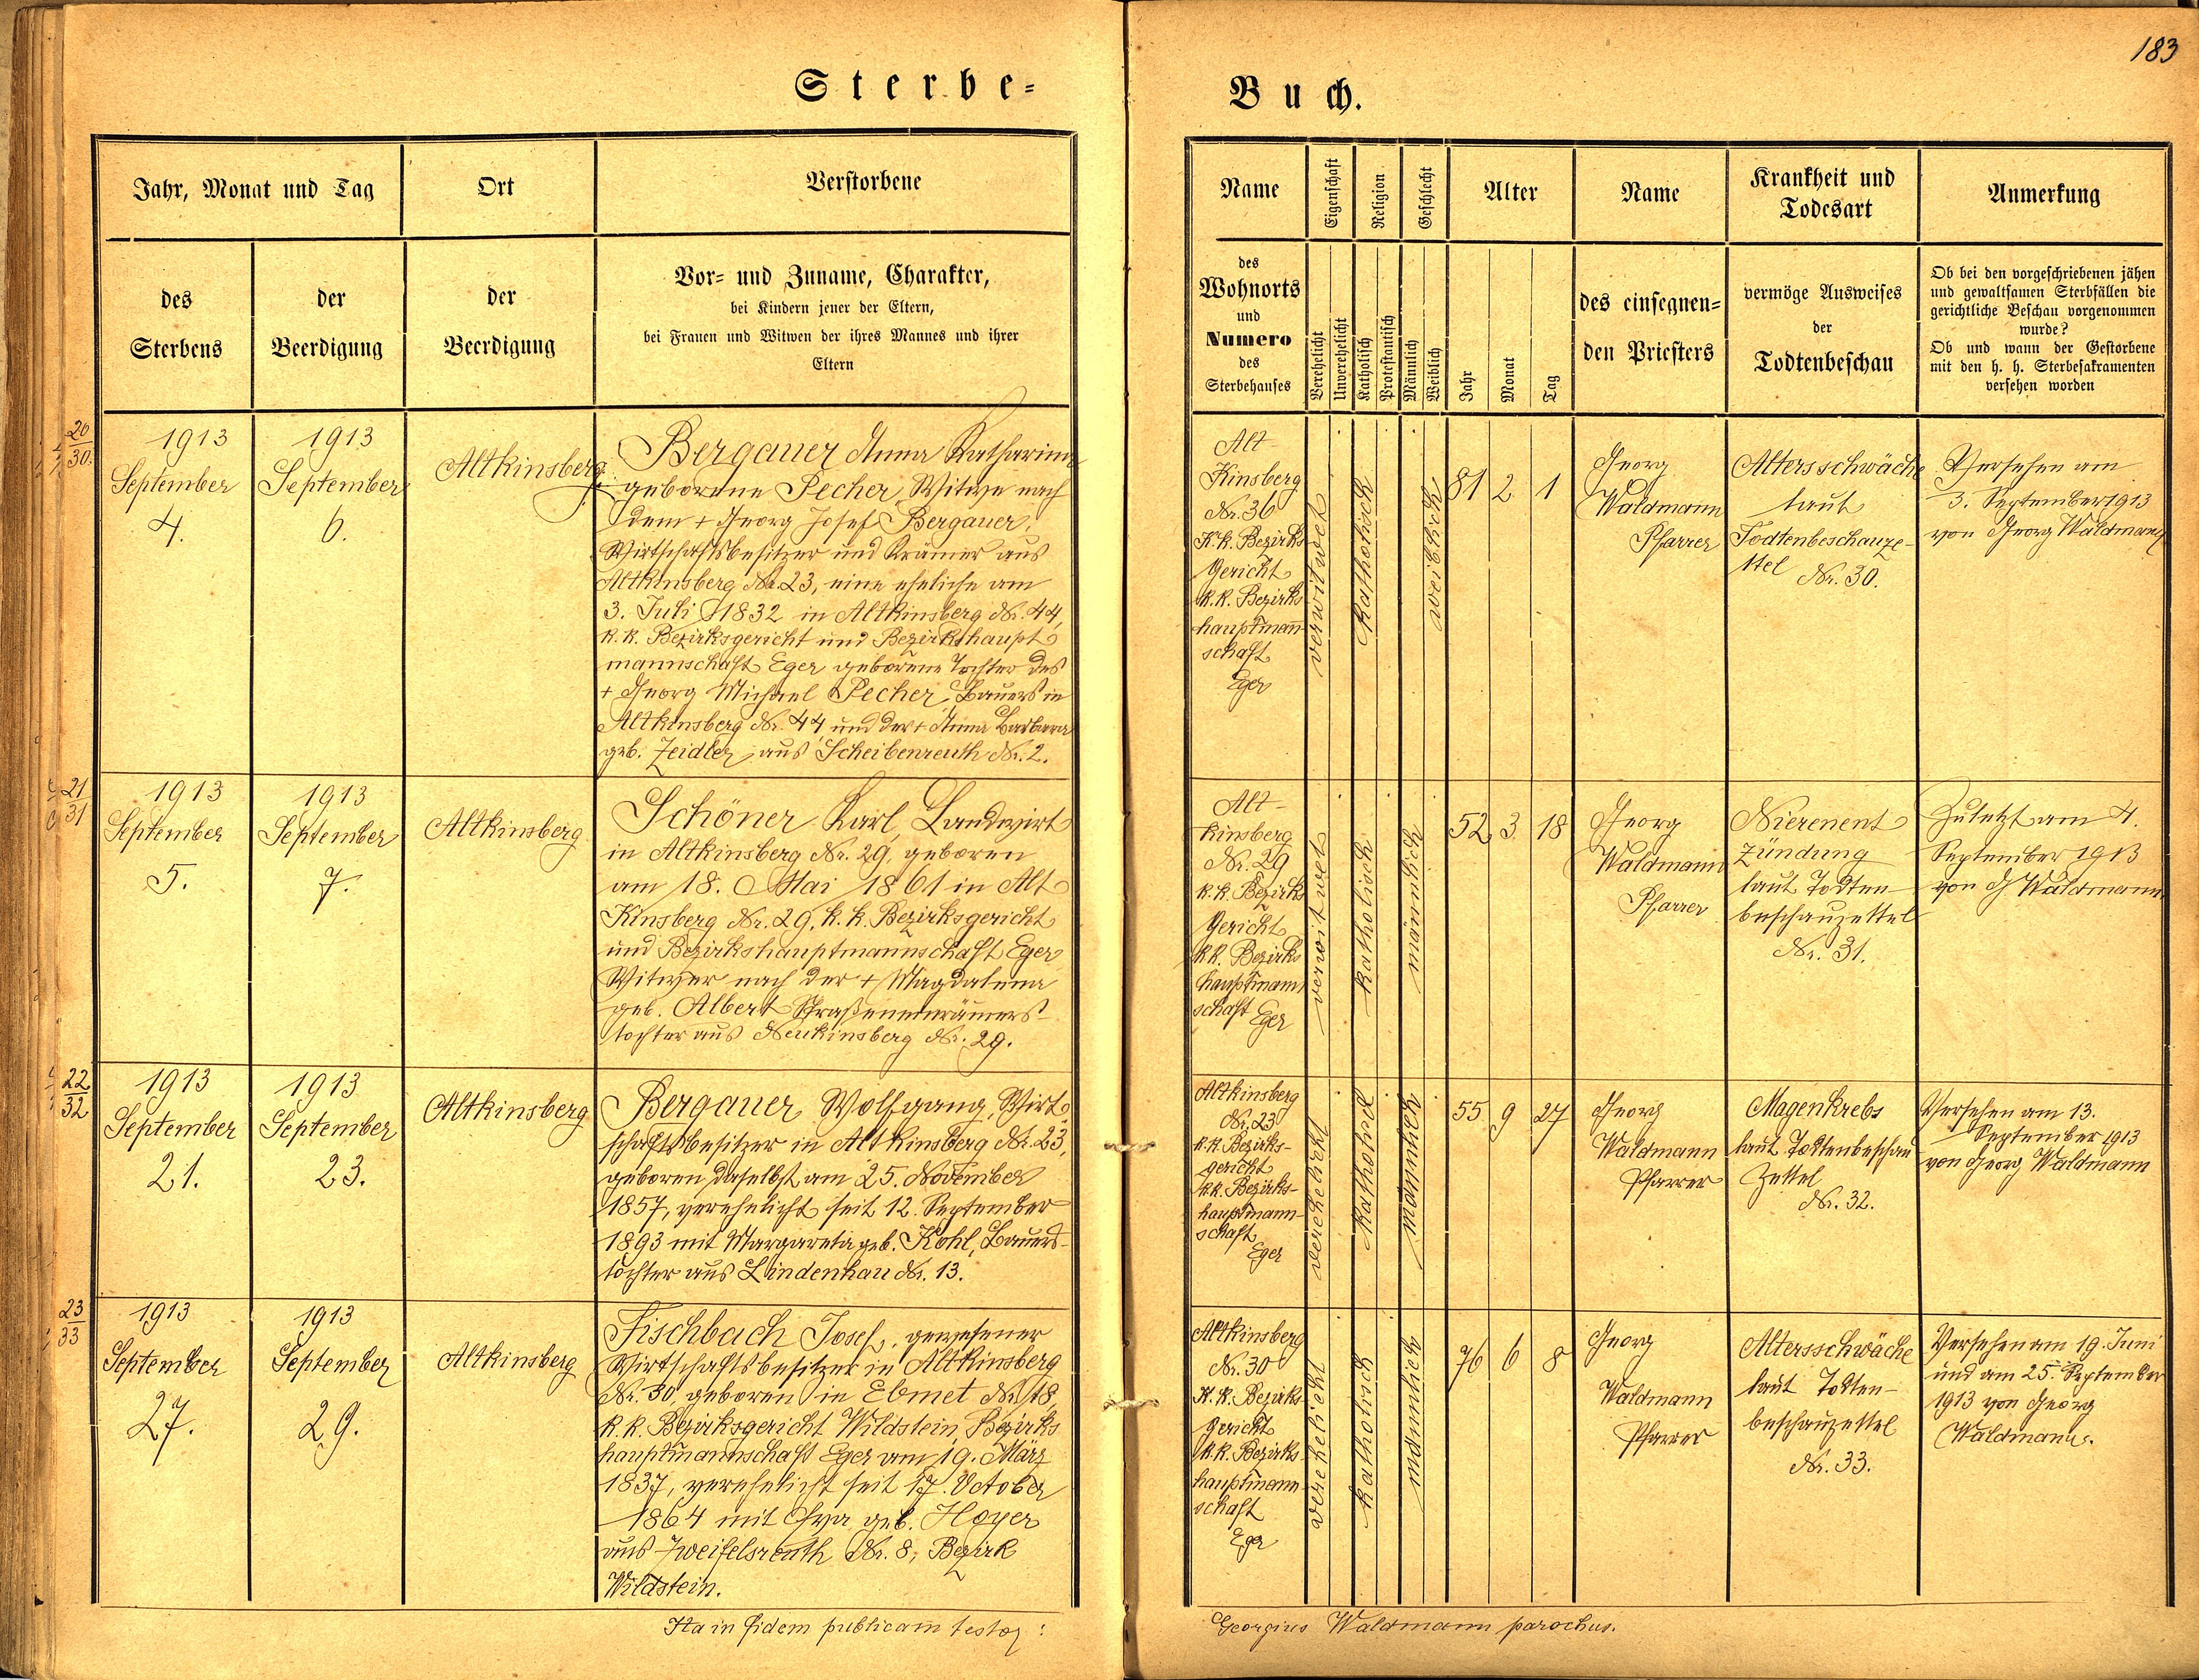 183
Sterbe-
Buch.
Jahr, Monat und Tag
Ort
Verstorbene
des
Sterbens
der
Beerdigung
der
Beerdigung
Vor- und Zuname, Charakter,
bei Kindern jener der Eltern,
bei Frauen und Witwen der ihres Mannes und ihrer
Eltern
Name
Eigenschaft
Religion
Geschlecht
Alter
Name
Krankheit und
Todesart
Anmerkung
des
Wohnorts
und
Numero
des
Sterbehauses
Verehelicht
Unverehelicht
Katholisch
Protestantisch
Männlich
Weiblich
Jahr
Monat
Tag
des einsegnen-
den Priesters
vermöge Ausweises
der
Todtenbeschau
Ob bei den vorgeschriebenen jähen
und gewaltsamen Sterbfällen die
gerichtliche Beschau vorgenommen
wurde?
Ob und wann der Gestorbene
mit den h. h. Sterbesakramenten
versehen worden
20
30.
1913
September
4.
1913
September
6.
Altkinsberg
Bergauer Anna Katharina
geborene Pecher, Witwe nach
dem + Georg Josef Bergauer,
Wirtschaftsbesitzer und Krämer aus
Altkinsberg Nr. 23, eine eheliche am
3. Juli 1832 in Altkinsberg Nr. 44,
k. k. Bezirksgericht und Bezirkshaupt
mannschaft Eger geborene Tochter des
+ Georg Michael Pecher, Bauers in
Altkinsberg Nr. 44 und der + Anna Barbara
geb. Zeidler, aus Scheibenreuth Nr. 2.
Alt-
Kinsberg
Nr. 36
K. k. Bezirks
Gericht
k. k. Bezirks
hauptmann
schaft
Eger
verwitwet
katholisch
weiblich
81 2 1
Georg
Waldmann
Pfarrer
Altersschwäche
laut
Todtenbeschauze-
ttel Nr. 30.
Versehen am
3. September 1913
von Georg Waldmann
21
31
1913
September
5.
1913
September
7.
Altkinsberg
Schöner Karl, Landwirt
in Altkinsberg Nr. 29, geboren
am 18. Mai 1861 in Alt
Kinsberg Nr. 29, k. k. Bezirksgericht
und Bezirkshauptmannschaft Eger
Witwer nach der + Magdalena
geb. Albert Straßeneinräumers-
tochter aus Neukinsberg Nr. 29.
Alt-
kinsberg
Nr. 29
k. k. Bezirks
Gericht
k. k. Bezirks
hauptmann
schaft Eger
verwitwet
katholisch
männlich
52 3 18
Georg
Waldmann
Pfarrer
Nierenent
zündung
laut Todten-
beschauzettel
Nr. 31.
Zuletzt am 4.
September 1913
von G Waldmann
22
32
1913
September
21.
1913
September
23.
Altkinsberg
Bergauer Wolfgang, Wirt-
schaftsbesitzer in Altkinsberg Nr. 23,
geboren daselbst am 25. November
1857, verehelicht seit 12. September
1893 mit Margareta geb. Kohl, Bauers-
tochter aus Lindenhau Nr. 13.
Altkinsberg
Nr. 23
k. k. Bezirks-
gericht
k. k. Bezirks-
hauptmann-
schaft
Eger
verehelicht
katholisch
männlich
55 9 27
Georg
Waldmann
Pfarrer
Magenkrebs
laut Todtenbeschau
Zettel
Nr. 32.
Versehen am 13.
September 1913
von Georg Waldmann
23
33
1913
September
27.
1913
September
29.
Altkinsberg
Fischbach Josef, gewesener
Wirtschaftsbesitzer in Altkinsberg
Nr. 30 geboren in Ebmet Nr. 18,
k. k. Bezirksgericht Wildstein, Bezirks
hauptmannschaft Eger am 19. März
1837, verehelicht seit 17. October
1864 mit Eva geb. Hoyer
aus Zweifelsreuth Nr. 8, Bezirk
Wildstein.
Altkinsberg
Nr. 30
K. k. Bezirks
Gericht
k. k. Bezirks-
hauptmann-
schaft
Eger
verehelicht
katholisch
männlich
76 6 8
Georg
Waldmann
Pfarrer
Altersschwäche
laut Todten-
beschauzettel
Nr. 33.
Versehen am 19. Juni
und am 25. September
1913 von Georg
Waldmann.
Ita in fidem publicam testor:
Georgius Waldmann parochus.